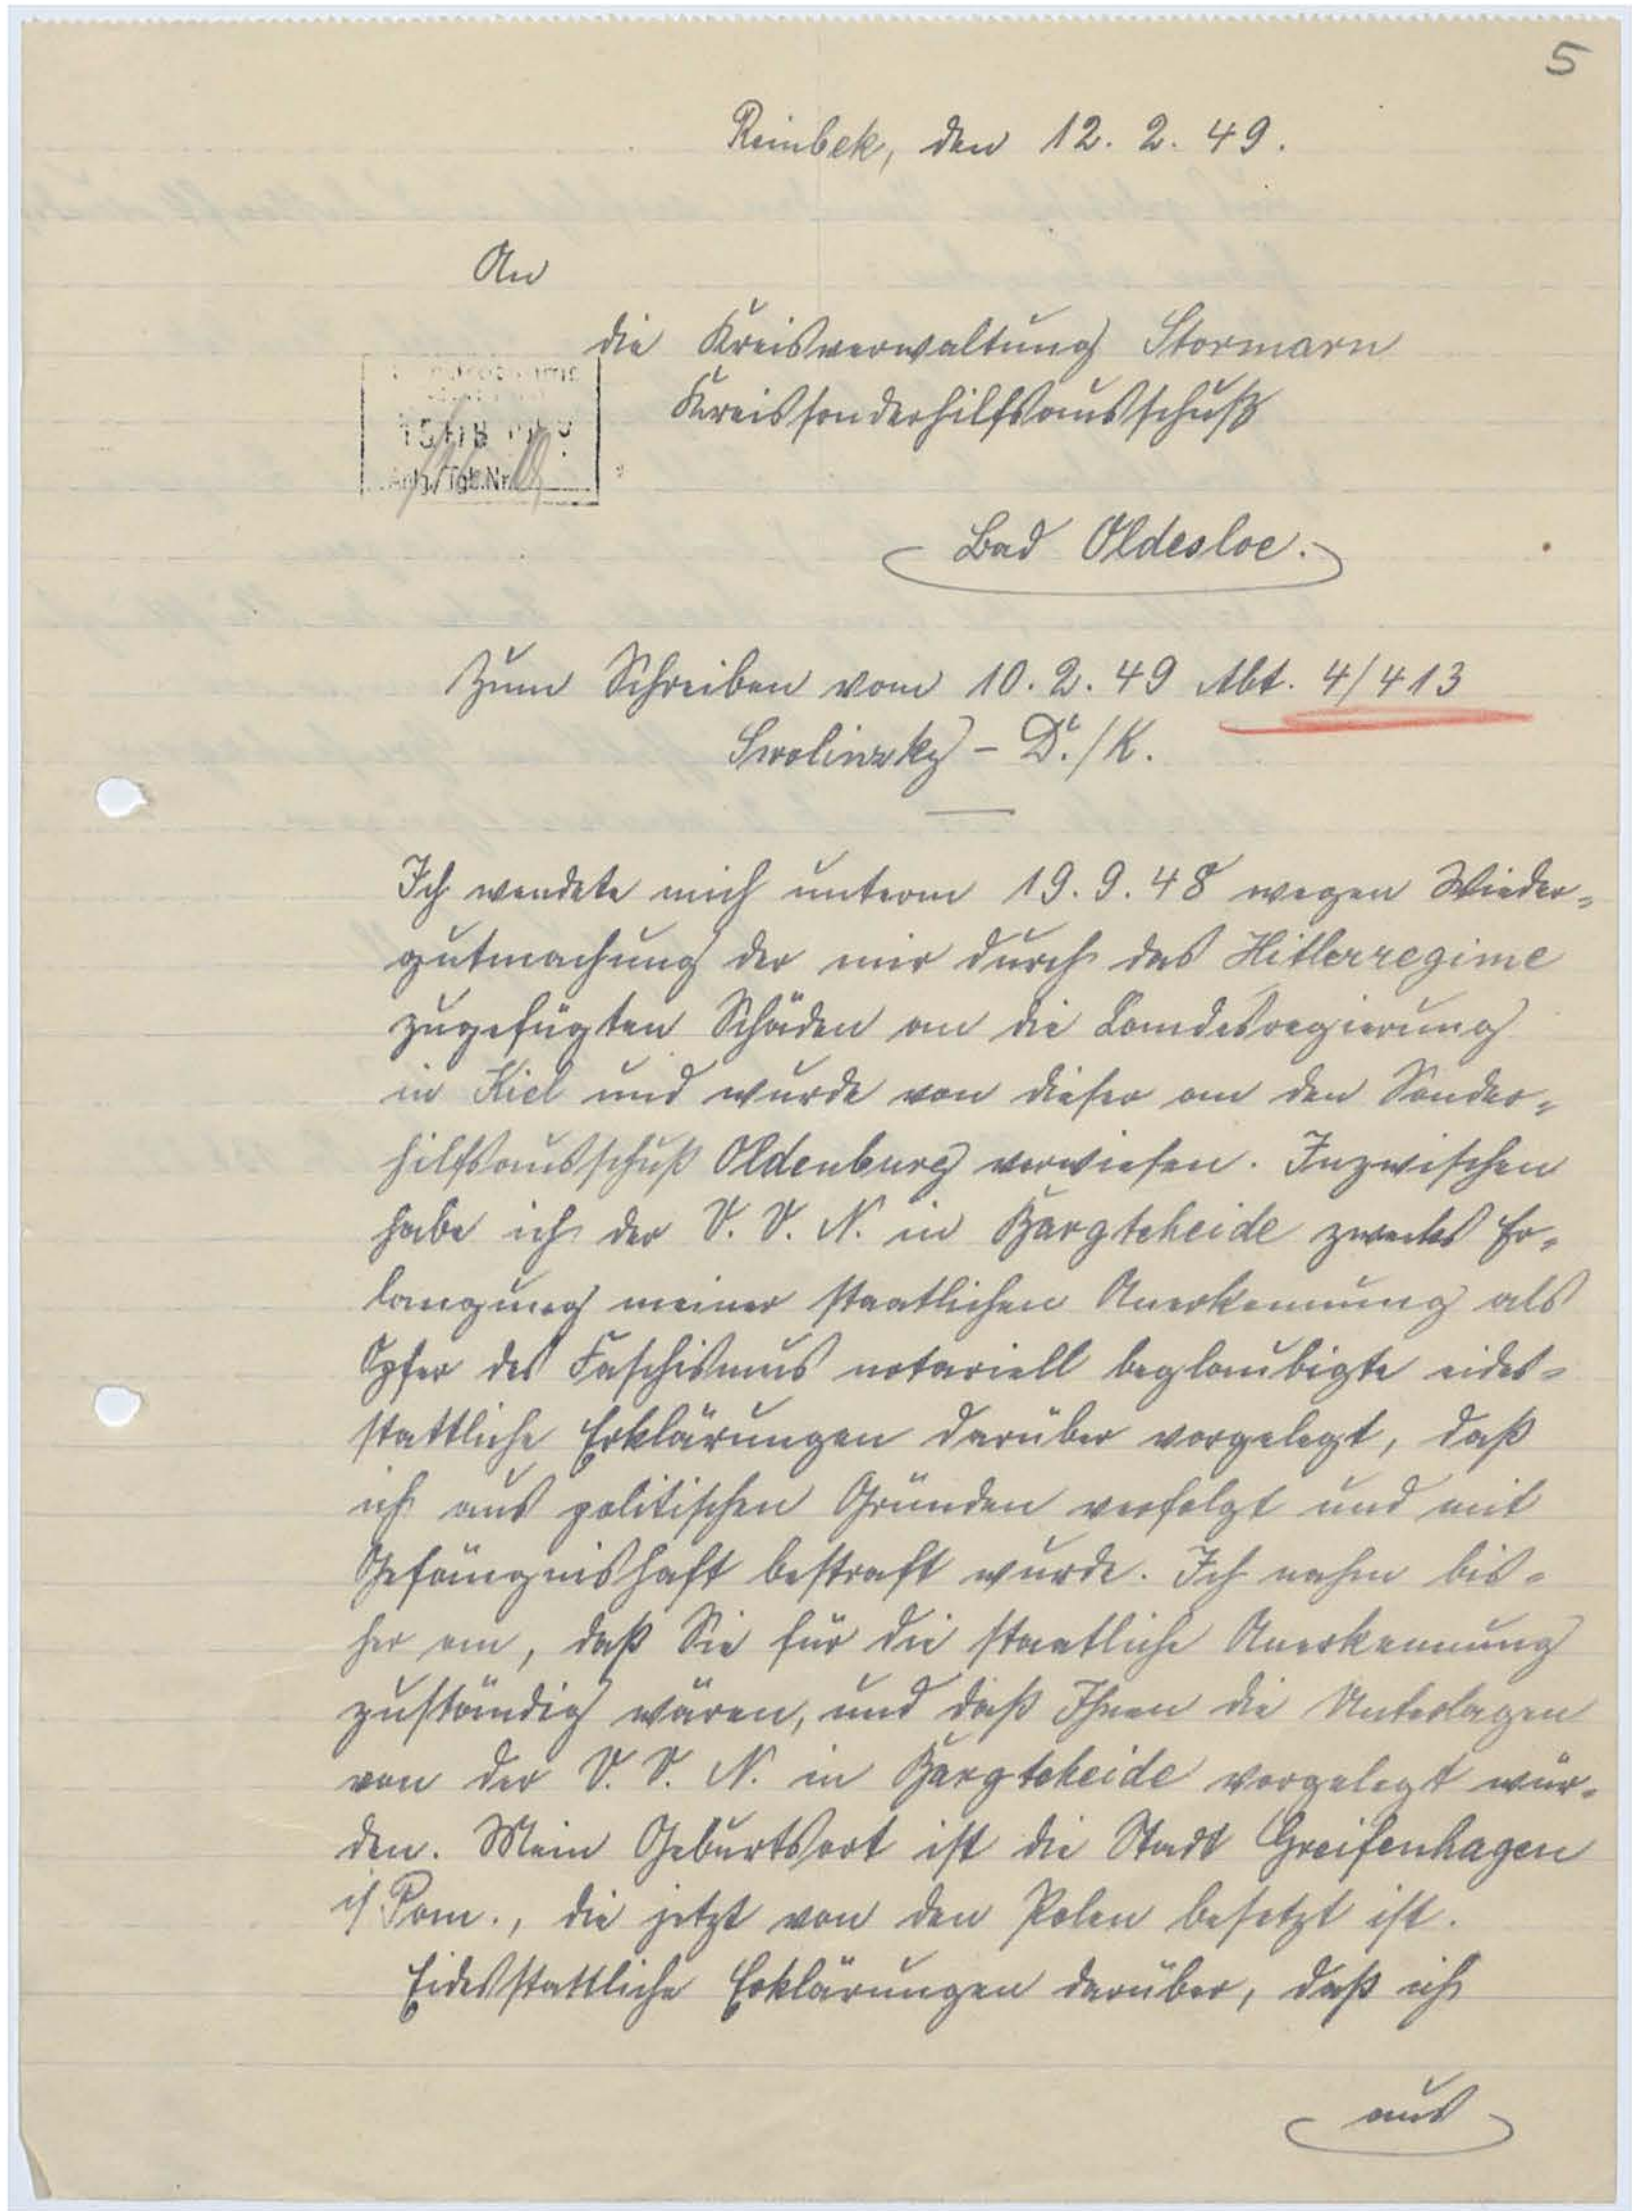 5
Reinbek, den 12. 2. 49.
An
die Kreisverwaltung Stormarn
Kreissonderhilfsausschuß
15. FEB.
/Tgb.Nr.
Bad Oldesloe.
Zum Schreiben vom 10. 2. 49 Abt. 4/413
- Dr./K.
Ich wendete mich unterm 19. 9. 48 wegen Wieder=
gutmachung der mir durch das Hitlerregime
zugefügten Schäden an die Landesregierung
in Kiel und wurde von dieser an den Sonder=
hilfsausschuß Oldenburg verwiesen. Inzwischen
habe ich der V. V. N. in Bargteheide zwecks Er=
langung meiner staatlichen Anerkennung als
Opfer des Faschismus notariell beglaubigte eides=
stattliche Erklärungen darüber vorgelegt, daß
ich aus politischen Gründen verfolgt und mit
Gefängnishaft bestraft wurde. Ich nahm bis=
her an, daß Sie für die staatliche Anerkennung
zuständig wären, und daß Ihnen die Unterlagen
von der V. V. N. in Bargteheide vorgelegt wür=
den. Mein Geburtsort ist die Stadt Greifenhagen
i/ Pom., die jetzt von den Polen besetzt ist.
Eidesstattliche Erklärungen darüber, daß ich
aus